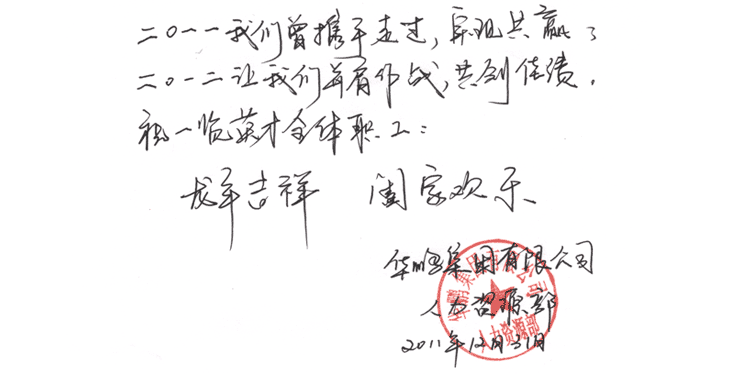 二〇一一我们曾携手走过，实现共赢；
二〇一二让我们并肩作战，共创佳绩。
祝一览英才全体职工：
龙年吉祥 阖家欢乐
华鹏集团有限公司
人力资源部
2011年12月31日
华鹏集团有限公司
人力资源部